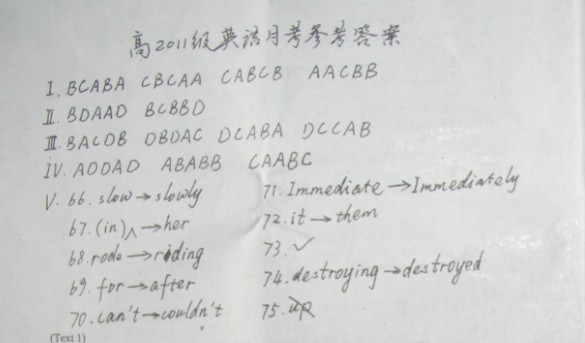 高2011级英语月考参考答案
I. BCABA CBCAA CABCB AACBB
II. BDAAD BCBBD
III. BACDB DBDAC DCABA DCCAB
IV. ADDAD ABABB CAABC
V. 66. slow→slowly 71. Immediate→Immediately
67. (in)∧→her 72. it→them
68. rode→riding 73. ✓
69. for→after 74. destroying→destroyed
70. can't→couldn't 75. up
(Text 1)